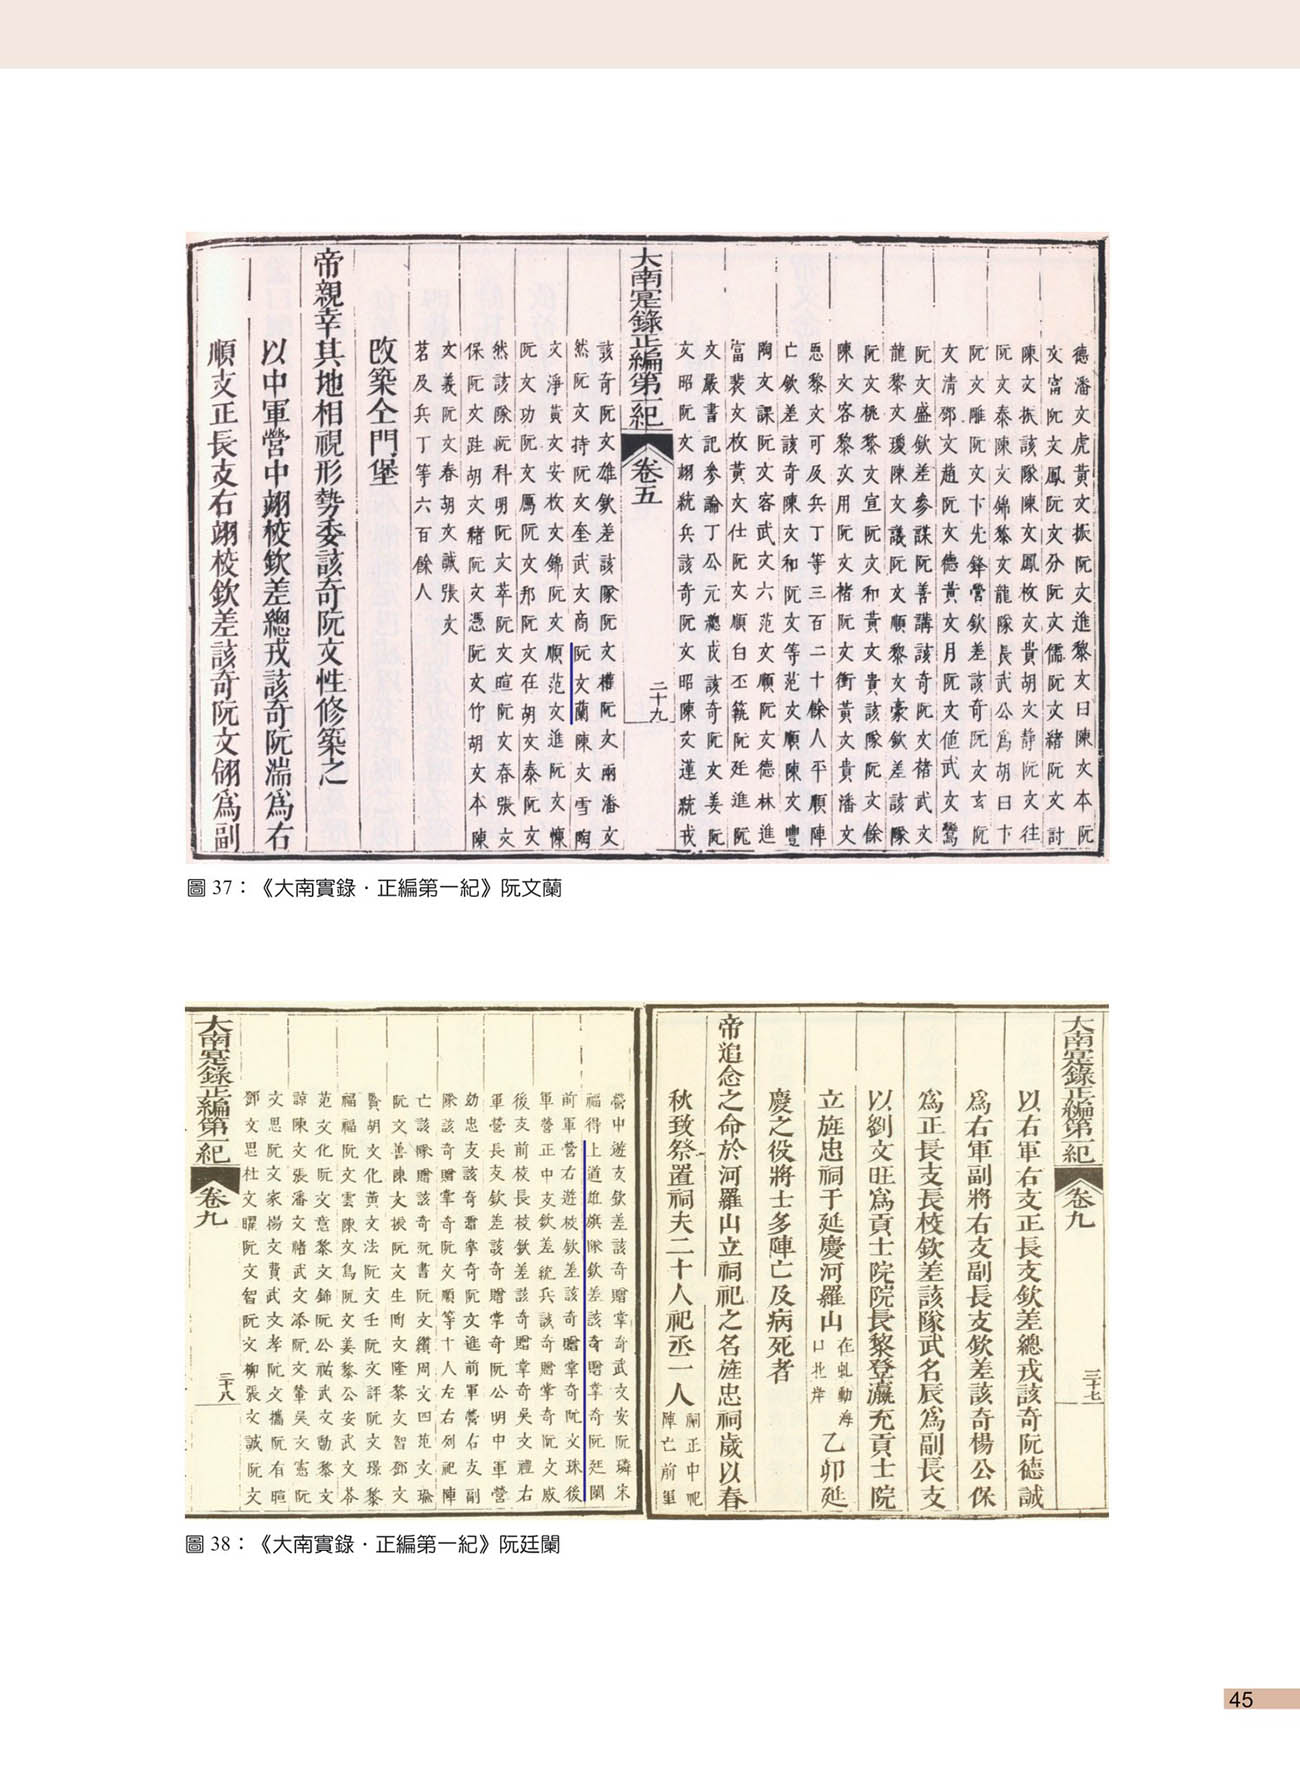 德潘文虎黃文振阮文進黎文曰陳文本阮
文富阮文鳳阮文分阮文儒阮文緒阮文討
陳文振該隊陳文鳳枚文貴胡文靜阮文往
阮文泰陳文錦黎文龍隊長武公為胡曰卞
阮文雕阮文卞先鋒營欽差該奇阮文玄阮
文清鄧文趙阮文德黃文月阮文值武文鸞
阮文盛欽差參謀阮善講該奇阮文褚武文
龍黎文璦陳文議阮文順黎文豪欽差該隊
阮文桃黎文宣阮文和黃文貴該隊阮文餘
陳文客黎文用阮文楮阮文衝黃文貴潘文
恩黎文可及兵丁等三百二十餘人平順陣
亡欽差該奇陳文和阮文等范文順陳文豐
陶文課阮文容武文六范文順阮文德林進
富裴文枚黃文仕阮文順白丕範阮廷進阮
文嚴書記參論丁公元總戎該奇阮文姜阮
文昭阮文翊統兵該奇阮文昭陳文蓮統戎
大南寔錄正編第一紀
卷五
二十九
該奇阮文雄欽差該隊阮文權阮文兩潘文
然阮文持阮文奎武文商阮文蘭陳文雪陶
文淨黃文安枚文錦阮文順范文進阮文慷
阮文功阮文厲阮文邦阮文在胡文泰阮文
然該隊阮科明阮文萃阮文暄阮文春張文
保阮文陛胡文豬阮文憑阮文竹胡文本陳
文義阮文春胡文誠張文
茗及兵丁等六百餘人
改築仝門堡
帝親幸其地相視形勢委該奇阮文性修築之
以中軍營中翊校欽差總戎該奇阮湍為右
順支正長支右翊校欽差該奇阮文㑽為副
圖 37:《大南實錄·正編第一紀》阮文蘭
大南寔錄正編第一紀
卷九
三十七
以右軍右支正長支欽差總戎該奇阮德誠
為右軍副將右支副長支欽差該奇楊公保
為正長支長校欽差該隊武名辰為副長支
以劉文旺為貢士院院長黎登瀛充貢士院
立旌忠祠于延慶河羅山在虬勳海口北岸乙卯延
慶之役將士多陣亡及病死者
帝追念之命於河羅山立祠祀之名旌忠祠歲以春
秋致祭置祠夫二十人祀丞一人嗣正中祀陣亡前軍
營中遊支欽差該奇贈掌奇武文安阮璘宋
福得上道雄旗隊欽差該奇贈掌奇阮廷闌
前軍營右遊校欽差該奇贈掌奇阮文珠後
軍營正中支欽差統兵該奇贈掌奇阮文威
後支前校長校欽差該奇贈掌奇吳文禮右
軍營長支欽差該奇贈掌奇阮公明中軍營
幼忠支該奇贈掌奇阮文進前軍營右支副
隊該奇贈掌奇阮文順等十人左右列祀陣
亡該隊贈該奇阮書阮文纘周文四范文瑜
阮文善陳文振阮文生陶文隆黎文智鄧文
賢胡文化黃文法阮文壬阮文評阮文璟黎
福福阮文雲陳文為阮文姜黎公安武文苓
范文化阮文意黎文錦阮公祐武文勳黎文
諒陳文張潘文睹武文添阮文肇吳文憲阮
文思阮文家楊文費武文孝阮文攜阮有暄
鄧文思杜文曜阮文智阮文柳張文誠阮文
大南寔錄正編第一紀
卷九
三十八
圖 38:《大南實錄·正編第一紀》阮廷闌
45